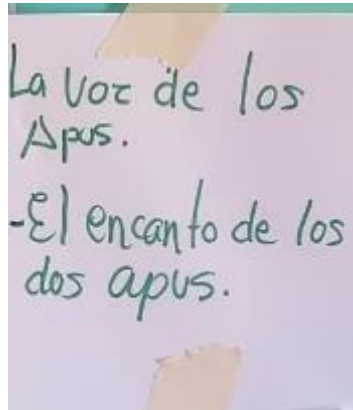 La Voz de los
Apus.
-El encanto de los
dos apus.